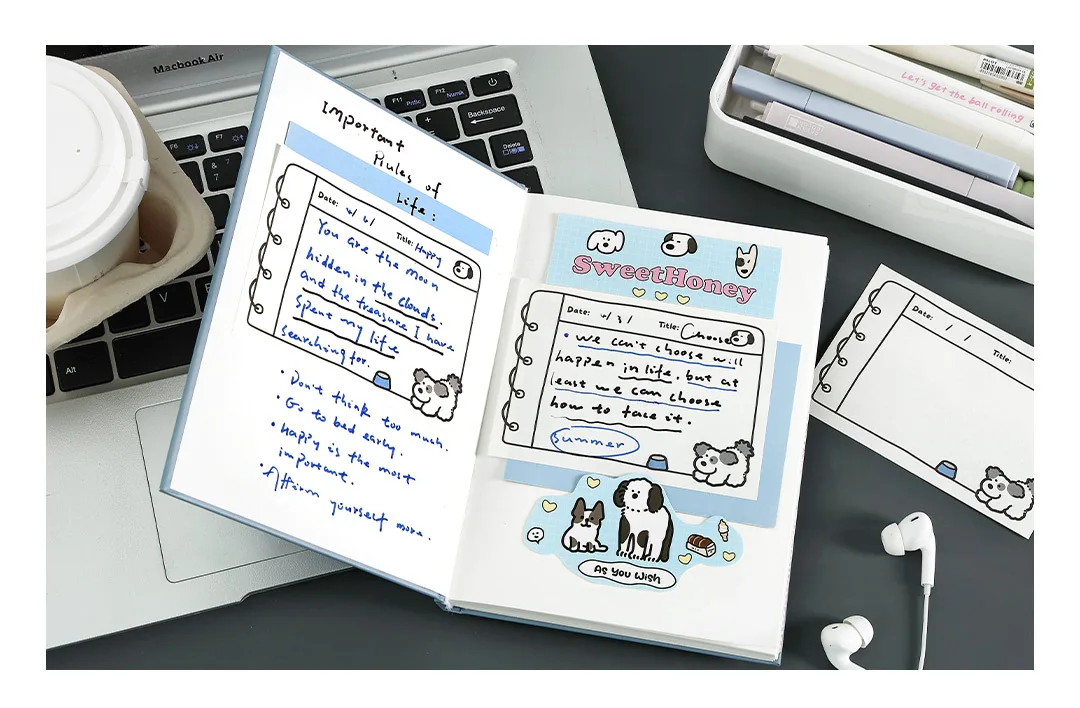 Macbook Air
F6
F7
&
7
F11
Prt Sc
F12
NumLk
+
Backspace
Delete
V
B
Alt
Let's get the ball rolling
Important
Rules of
Life:
Date: / /
Title: Happy
You are the moon
hidden in the clouds.
and the treasure I have
spent my life
searching for.
• Don't think too much.
• Go to bed early.
• Happy is the most
important.
• Affirm yourself more.
SweetHoney
Date: / 3 /
Title: Choose
• we can't choose will
happen in life. but at
least we can choose
how to face it.
Summer
As you wish
Date: / /
Title: